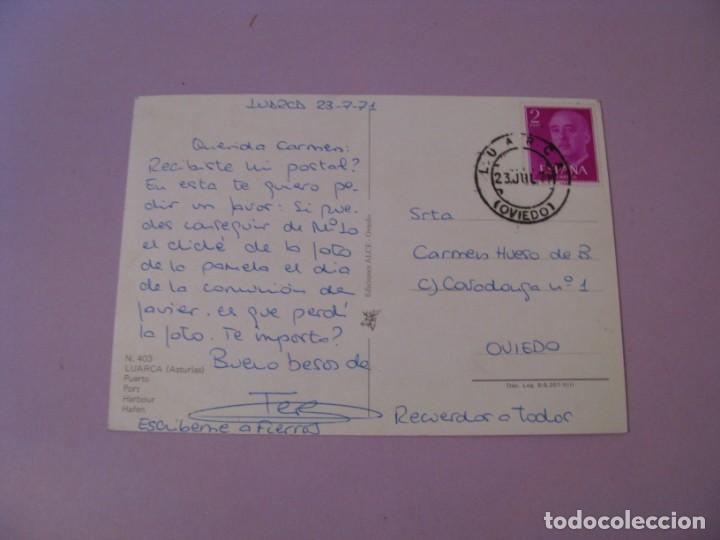 LUARCA 23-7-71
Querida Carmen:
Recibiste mi postal?
En esta te quiero pe-
dir un favor: Si pue-
des conseguir de Mº
el cliché de la foto
de la pamela el día
de la comunión de
Javier. es que perdí
la foto. Te importa?
Bueno besos de
Tere
Escribeme a Fierros
Recuerdos a todos
N. 403
LUARCA (Asturias)
Puerto
Port
Harbour
Hafen
Ediciones ALCE - Oviedo
2
ESPAÑA
LUARCA
23 JUL
(OVIEDO)
Srta
Carmen Hueso de B.
C) Covadonga nº 1
OVIEDO
Dep. Leg. B-
todocoleccion